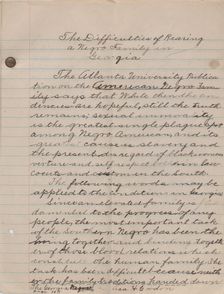 The Difficulties of Rearing
a Negro Family in
Georgia
The Atlanta University Publica
tion on the American Negro Fam
ily says that while then the ten
dencies are hopeful, still the truth
remains: sexual immorality
is the greatest single plague spot
among Negro Americans and its
great cause is slavery and
the present disregard of black woman's
virtue and self respect both in law
courts and custom in the South.
The following words may be
applied to the condition in Georgia
Since an elevated family is
fundamental to the progress of any
people, the most important task
of the Southern Negro has been the
together and binding togeth
er of those blood relations which
constitute the human family. The
task has been difficult because neith
er the family traditions handed down